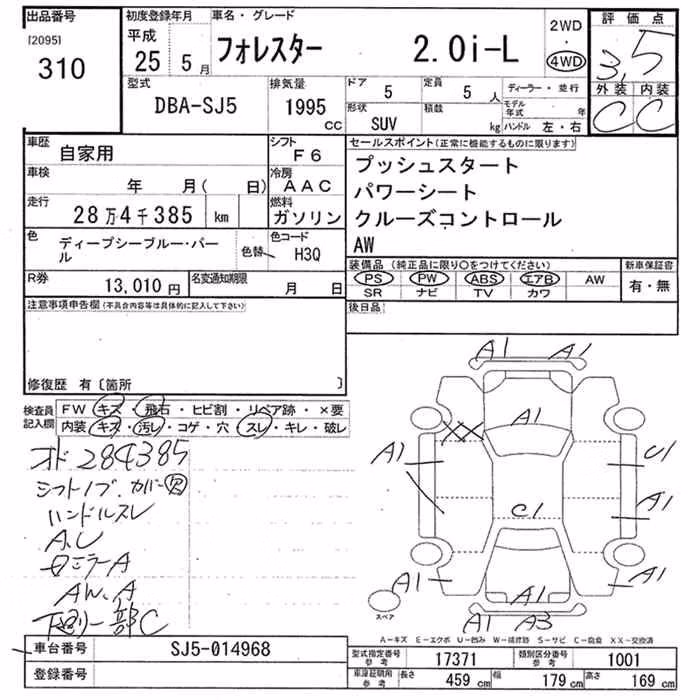 出品番号
[2095]
310
初度登録年月
平成
25 5月
車名・グレード
フォレスター 2.0i-L
2WD
・
4WD
評価点
3.5
外装 内装
C C
型式
DBA-SJ5
排気量
1995
CC
ドア
5
定員
5 人
形状
SUV
積載
kg
ディーラー・並行
モデル年式 年
ハンドル 左・右
車歴
自家用
シフト
F6
車検
年 月( 日)
冷房
AAC
走行
28万4千385 km
燃料
ガソリン
色
ディープシーブルー・パール
色替
色コード
H3Q
R券
13,010円
名変通知期限
月 日
セールスポイント(正常に機能するものに限ります)
プッシュスタート
パワーシート
クルーズコントロール
AW
装備品(純正品に限り○をつけてください)
PS PW ABS エアB AW
SR ナビ TV カワ
新車保証書
有・無
後日品
注意事項申告欄(不具合内容等は具体的に記入して下さい)
修復歴 有〔箇所 〕
検査員
記入欄
FW キズ・飛石・ヒビ割・リペア跡・×要
内装 キズ・汚レ・コゲ・穴・スレ・キレ・破レ
オド284385
シフトノブ、カバー欠
ハンドルスレ
A、U
ロミラーA
AW、A
下廻リ一部C
A1 A1
A1
XX
A1
C1
A1
C1
A1
A1
A1
A1 A3
スペア
A－キズ E－エクボ U－凹み W－補修跡 S－サビ C－腐食 XX－交換済
車台番号
SJ5-014968
登録番号
型式指定番号
参考
17371
類別区分番号
参考
1001
車庫証明用
参考
長さ 459 cm
幅 179 cm
高さ 169 cm